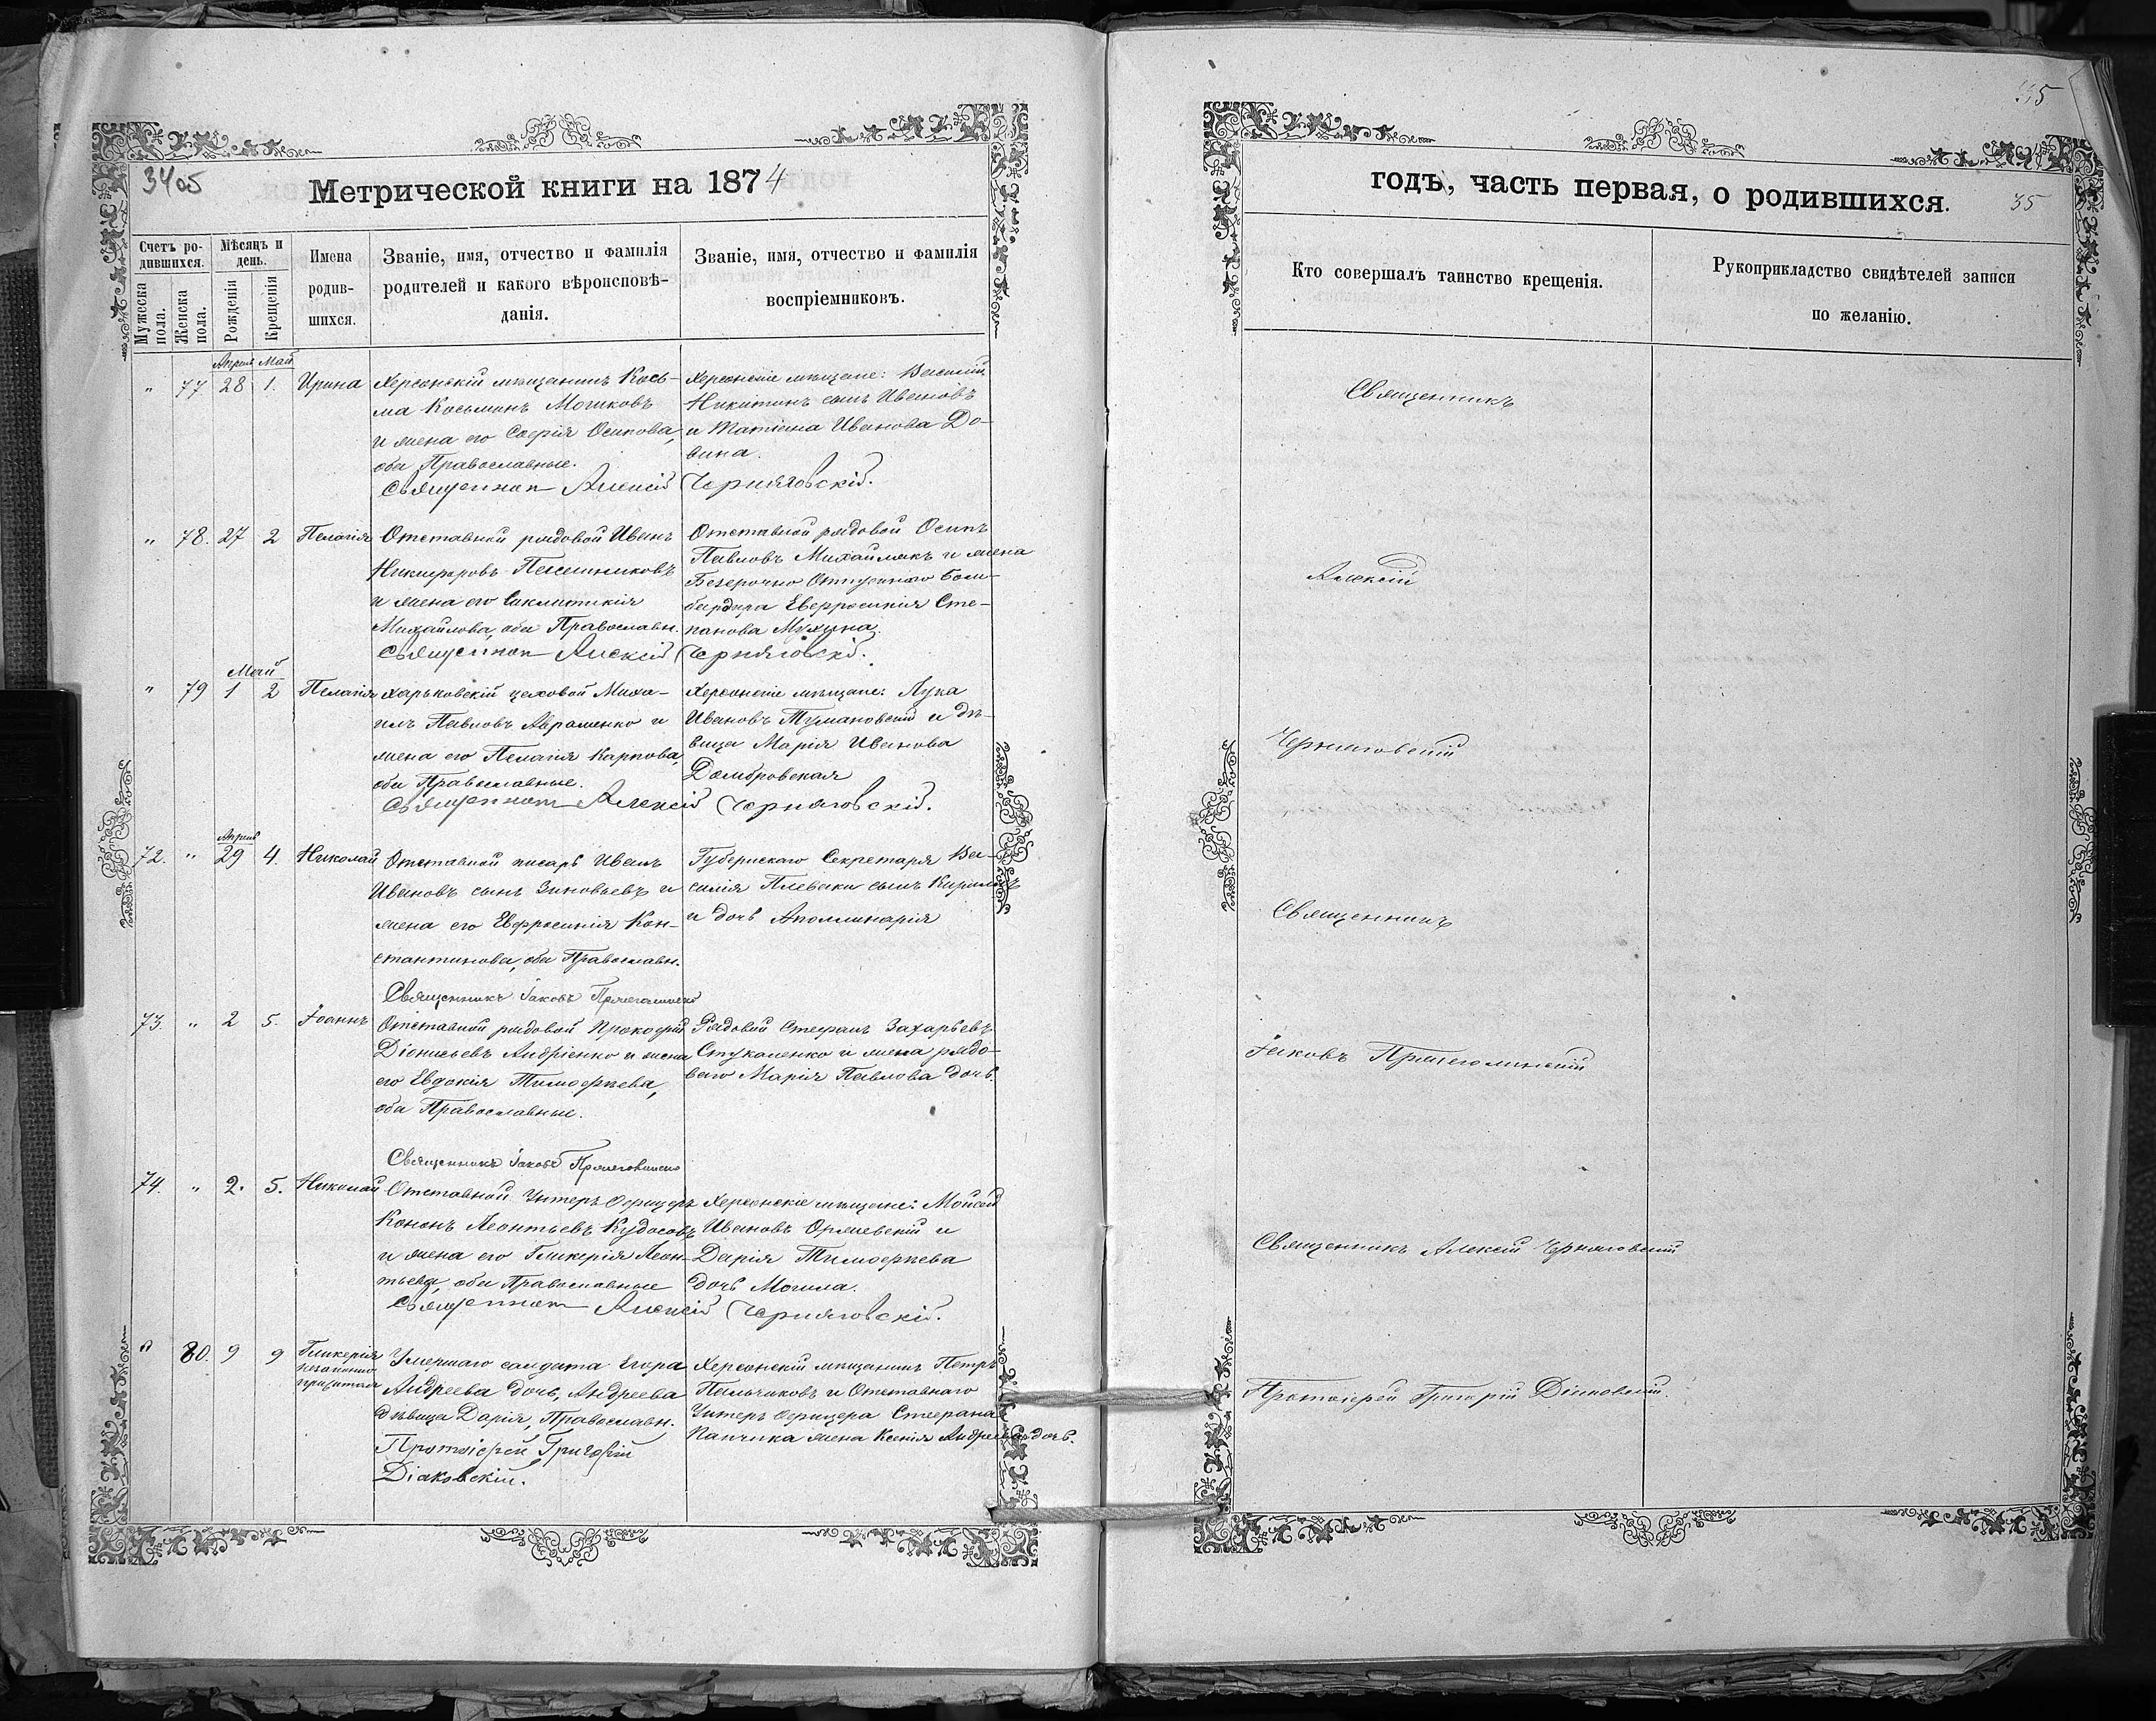 3405
Метрической книги на 1874
Счетъ ро-
дившихся.
Мѣсяцъ и
день.
Мужеска
пола.
Женска
пола.
Рожденія
Крещенія
Имена
родив-
шихся.
Званіе, имя, отчество и фамилія
родителей и какого вѣроисповѣ-
данія.
Званіе, имя, отчество и фамилія
воспріемниковъ.
Апреля Май
" 77 28 1. Ирина
Херсонскій мѣщанинъ Кось-
ма Косьминъ Могиковъ
и жена его Софія Осипова,
оба Православные.
Херсонскіе мѣщане: Василий
Никитинъ сынъ Ивановъ
и Татіана Иванова До-
вина.
Священник Алексій Черняговскій.
" 78. 27 2 Пелагія
Отставной рядовой Иванъ
Никифоровъ
и жена его
Михайлова, оба Православн.
Отставной рядовой Осипъ
Павловъ Михайлякъ и жена
Безсрочно Отпускного Бом-
бардира Евфросинія Сте-
панова Мухина.
Священник Алексій Черняговскій.
Май
" 79 1 2 Пелагія
Харьковскій цеховой Миха-
илъ Павловъ Авраменко и
жена его Пелагія Карпова,
оба Православные.
Херсонскіе мѣщане: Лука
Ивановъ Тумановскій и дѣ-
вица Марія Иванова
Домбровская
Священник Алексій Черняговскій.
Апрель
72. " 29 4. Николай
Отставной писарь Иванъ
Ивановъ сынъ Зиновьевъ и
жена его Евфросинія Кон-
стантинова, оба Православн.
Губернскаго Секретаря Ва-
силія Плевака сынъ Кирилъ
и дочь Аполлинарія
Священникъ Іаковъ
73. " 2 5. Іоаннъ
Отставной рядовой Прокофій
Діонисьевъ Андріенко и жена
его Евдокія Тимофѣева,
оба Православные.
Рядовой Стефанъ Захарьевъ
Стукаленко и жена рядо-
ваго Марія Павлова дочь.
Священникъ Іаковъ
74. " 2. 5. Николай
Отставной Унтеръ Офицеръ
Кононъ Леонтьевъ Кудасовъ
и жена его Гликерія Леон-
тьева, оба Православные
Херсонскіе мѣщане: Мойсей
Ивановъ Оржевскій и
Дарія Тимофѣева
дочь Могила.
Священник Алексій Черняговскій.
" 80. 9 9 Гликерія
незаконно
прижитая
Умершаго солдата Егора
Андреева дочь, Андреева
дѣвица Дарія, Православн.
Херсонскій мѣщанинъ Петръ
Пальчиковъ и Отставнаго
Унтеръ Офицера Стефана
Папчика жена Ксенія Андреева дочь.
Протоіерей Григорій
Діаковскій.
35
годъ, часть первая, о родившихся.
35
Кто совершалъ таинство крещенія.
Рукоприкладство свидѣтелей записи
по желанію.
Священникъ
Алексій
Черняговскій
Священникъ
Іаковъ
Священникъ Алексій Черняговскій
Протоіерей Григорій Діаковскій.